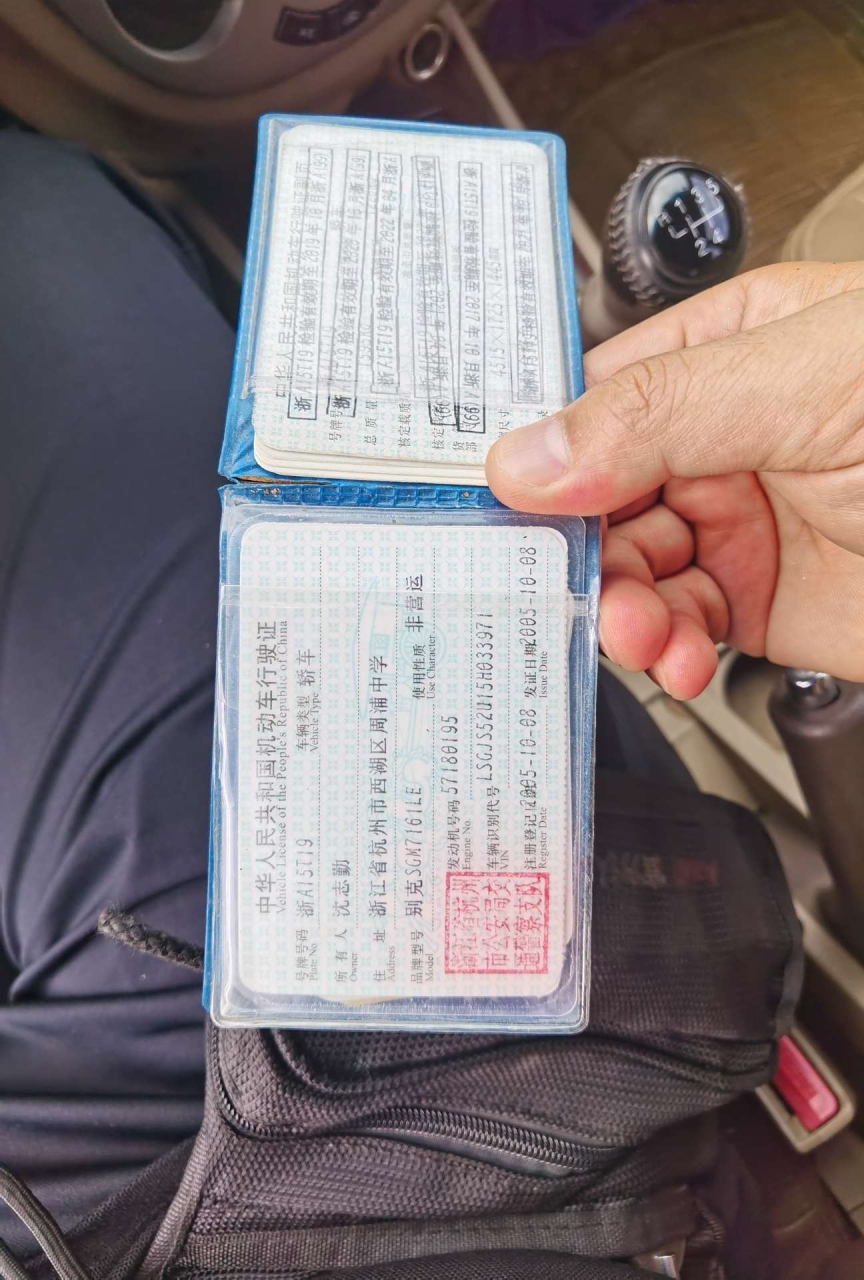 中华人民共和国机动车行驶证
Vehicle License of the People's Republic of China
号牌号码 浙A15T19 车辆类型 轿车
Plate No. Vehicle Type
所有人 沈志勤
Owner
住址 浙江省杭州市西湖区周浦中学
Address
品牌型号 别克SGM7161LE 使用性质 非营运
Model Use Character
发动机号码 57180195
Engine No.
车辆识别代号 LSGJS52U15H033971
VIN
注册登记 2005-10-08 发证日期 2005-10-08
Register Date Issue Date
浙江省杭州
市公安局交
通警察支队
中华人民共和国机动车行驶证副页
浙A15T19 检验有效期至2019年10月浙A(99)
号牌号
浙A15T19 检验有效期至2020年10月浙A(99)
总质量
浙A15T19 检验有效期至2022年04月浙A
核定载质
核定
4515×1725×1445
尺寸
1
3
5
2
4
R